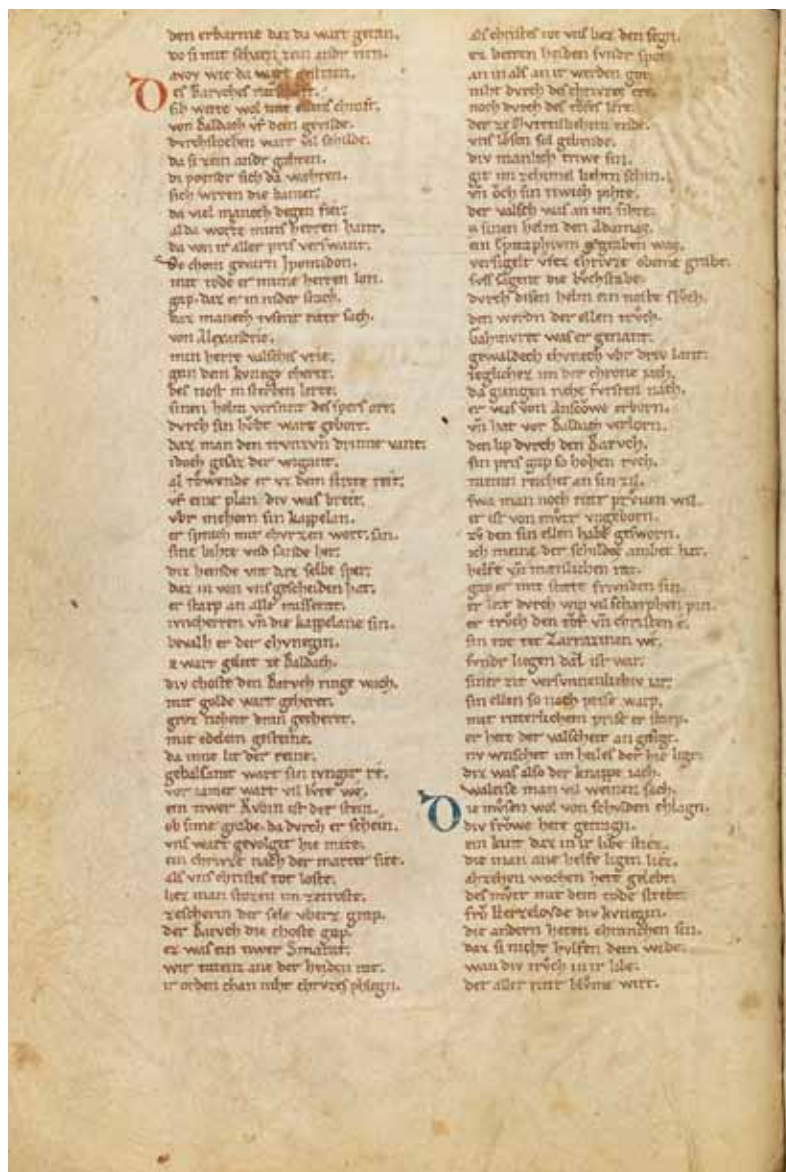 den erbarme daz da wart getan.
do si mit scharn zein andr riten.
avoy wie da wart gestriten.
Des Barvches
sih werte wol mit chraft.
von Baldach vf dem gevilde.
dvrchstochen wart vil schilde.
da si zein andr gahten.
di poindr sich da wahten.
sich wrren die banier.
da viel manech degen fier.
alda worte mins herren hant.
da von ir aller pris verswant.
do chom gevarn Jpomidon.
mit tode er mime herren lon.
gap. daz er in nider stach.
daz manech tvsent ritr sach.
von Alexandrie.
min herre valschis vrie.
gein dem kvnege cherte.
des tiost in sterben lerte.
sinen helm versneit des spers ort.
dvrch sin hobt wart gebort.
daz man den trvnzvn drinne vant.
idoch gesaz der wigant.
al towende er vz dem strite reit.
vf eine plan div was breit.
vbr in chom sin kappelan.
er sprach mit chvrzen wortn san.
sine bihte vnd sande her.
diz hemde vnt daz selbe sper.
daz in von vns gescheiden hat.
er starp an alle missetat.
ivncherren vn die kappelane sin.
bevalh er der chvnegin.
er wart geleit ze Baldach.
div choste den Barvch ringe wach.
mit golde wart geheret.
groz richeit dran gecheret.
mit edelem gesteine.
da inne lit der reine.
gebalsamt wart sin ivngr re.
vor iamer wart vil lvten we.
ein tiwer Rvbin ist der stein.
ob sime grabe. da dvrch er schein.
vns wart gevolget hie mite.
ein chrvze nach der marter site.
als vns christes tot loste.
liez man stozen im zetroste.
zescherm der sele vberz grap.
der Barvch die choste gap.
ez was ein tiwer Smarat.
wir tatenz ane der heiden rat.
ir orden chan niht chrvzes phlegn.
als christes tot vns liez den segn.
ez betten heiden svndr spot.
an in als an ir werden got.
niht dvrch des chrvzes ere.
noch dvrch des tovfes lere.
der ze Vrteilichem ende.
vns losen sol gebende.
div manlich triwe sin.
git im zehimel liehtn schin.
vn och sin riwich pihte.
der valsch was an im sihte.
in sinen helm den Adamas.
ein Epitaphivm gegraben was.
versigelt vfez chrvze obeme grabe.
svs sagent die bvchstabe.
dvrch disen helm ein tioste slvch.
den werdn der ellen trvch.
Gahmvret was er genant.
gewaldech chvnech vbr driv lant.
ieglichez im der chrone iach.
da giengen riche fvrsten nach.
er was von Anscowe erborn.
vn hat vor Baldach verlorn.
den lip dvrch den Barvch.
sin pris gap so hohen rvch.
niemn reichet an sin zil.
swa man noch ritr prvven wil.
er ist von mvtr vngeborn.
zv dem sin ellen habe gesworn.
ich meine der schildes ambet hat.
helfe vn manlichen rat.
gap er mit stæte frivnden sin.
er leit dvrch wip vil scharphen pin.
er trvch den tof vn christen e.
sin tot tet Sarrazinen we.
svndr liegen daz ist war.
siner zit versvnnenlichiv iar.
sin ellen so nach prise warp.
mit riterlichem prise er starp.
er hete der valscheit an gesigt.
nv wnschet im heiles der hie ligt.
diz was also der knappe iach.
waleise man vil weinen sach.
Die mvsen wol von schvlden chlagn.
div frowe hete getragn.
ein kint daz in ir libe stiez.
die man ane helfe ligen liez.
ahzehen wochen hete gelebt.
des mvtr mit dem tode strebt.
fro Herzeloyde div kvnegin.
die andern heten chranchen sin.
daz si nicht hvlfen dem wibe.
wan div trvch in ir libe.
der aller ritr blvme wirt.